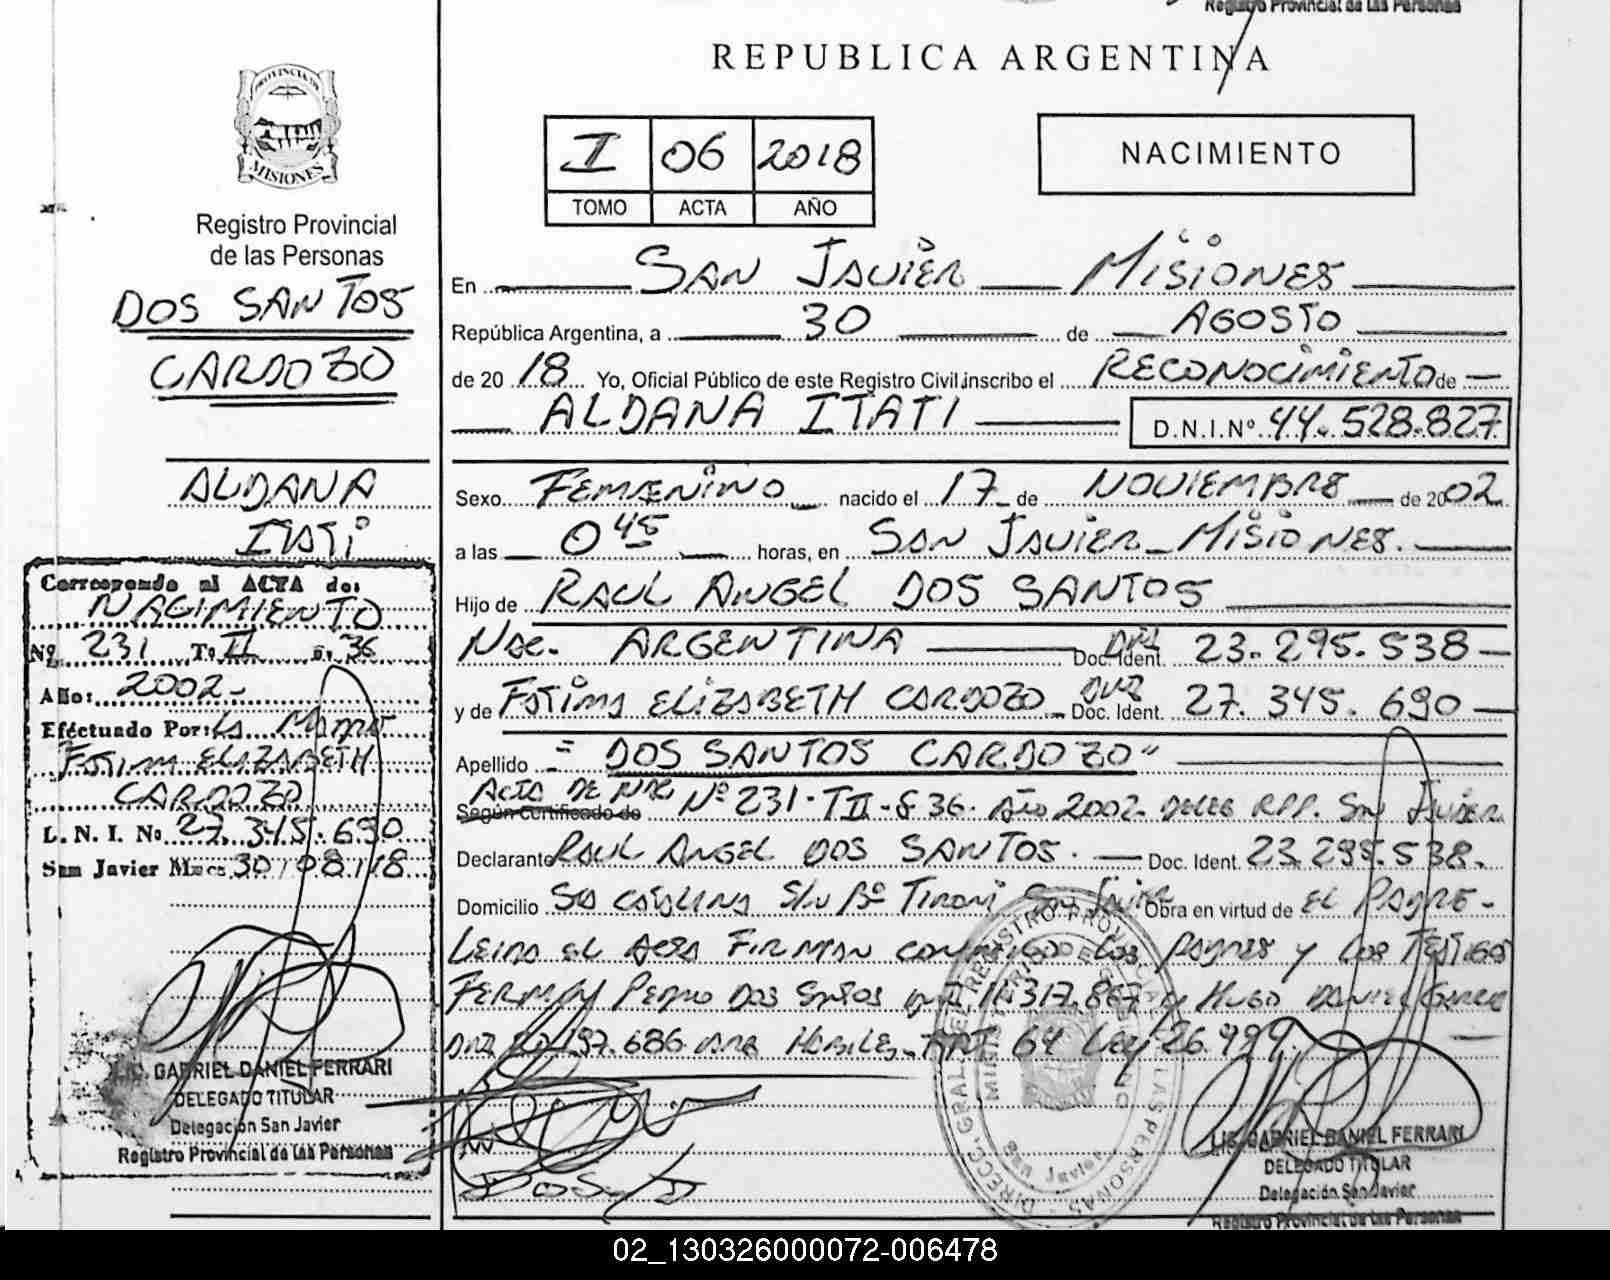 Registro Provincial de las Personas
REPUBLICA ARGENTINA
PROVINCIA DE
MISIONES
I 06 2018
TOMO ACTA AÑO
NACIMIENTO
Registro Provincial
de las Personas
DOS SANTOS
CARDOZO
ALDANA
ITATI
Corresponde al ACTA de:
NACIMIENTO
Nº 231 Tº II Fº 36
Año: 2002-
Efectuado Por: La Madre
FATIMA ELIZABETH
CARDOZO
L. N. I. No. 27.345.690
San Javier Mnes 30/08/18
LIC. GABRIEL DANIEL FERRARI
DELEGADO TITULAR
Delegación San Javier
Registro Provincial de las Personas
En SAN JAVIER MISIONES
República Argentina, a 30 de AGOSTO
de 20 18 Yo, Oficial Público de este Registro Civil inscribo el RECONOCIMIENTO de
ALDANA ITATI D.N.I.Nº 44.528.827
Sexo FEMENINO nacido el 17 de NOVIEMBRE de 2002
a las 0 45 horas, en SAN JAVIER - MISIONES.
Hijo de RAUL ANGEL DOS SANTOS
Nac. ARGENTINA Doc. Ident. DNI 23.295.538
y de FATIMA ELIZABETH CARDOZO Doc. Ident. DNI 27.345.690
Apellido = DOS SANTOS CARDOZO"
Según certificado de ACTA DE NAC Nº 231 - T II - F 36 - Año 2002 DELEG RPP. San JAVIER
Declarante RAUL ANGEL DOS SANTOS. Doc. Ident. 23.295.538.
Domicilio Sta CATALINA S/N Bº San Javier Obra en virtud de EL PADRE -
LEIDA EL ACTA FIRMAN CONMIGO LOS PADRES y LOS TESTIGOS
FERMIN PEDRO DOS SANTOS DNI 11.317.867 y HUGO DANIEL
DNI 20.197.686 HABILES ART 64 Ley 26.994.
DIRECC. GRAL. DEL REGISTRO PROVINCIAL DE LAS PERSONAS
MINISTERIO DE GOBIERNO
San Javier
LIC. GABRIEL DANIEL FERRARI
DELEGADO TITULAR
Delegación San Javier
Registro Provincial de las Personas
02_130326000072-006478